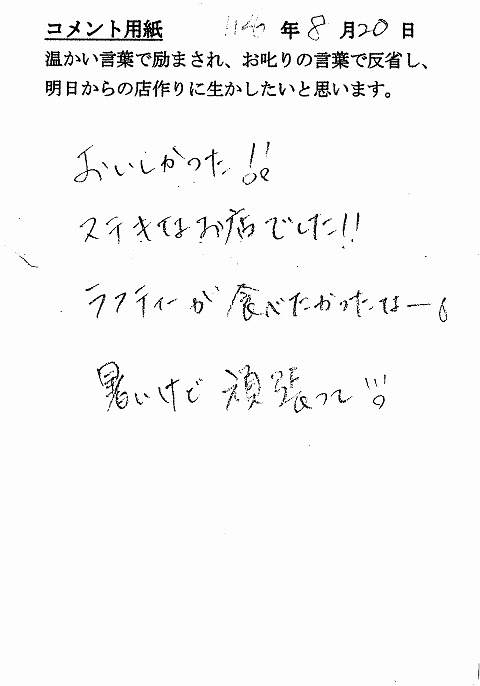 コメント用紙 年 8 月 20 日
温かい言葉で励まされ、お叱りの言葉で反省し、
明日からの店作りに生かしたいと思います。
おいしかった!!
ステキなお店でした!!
ラフティーが食べたかったなー。
暑いけど頑張って!!!